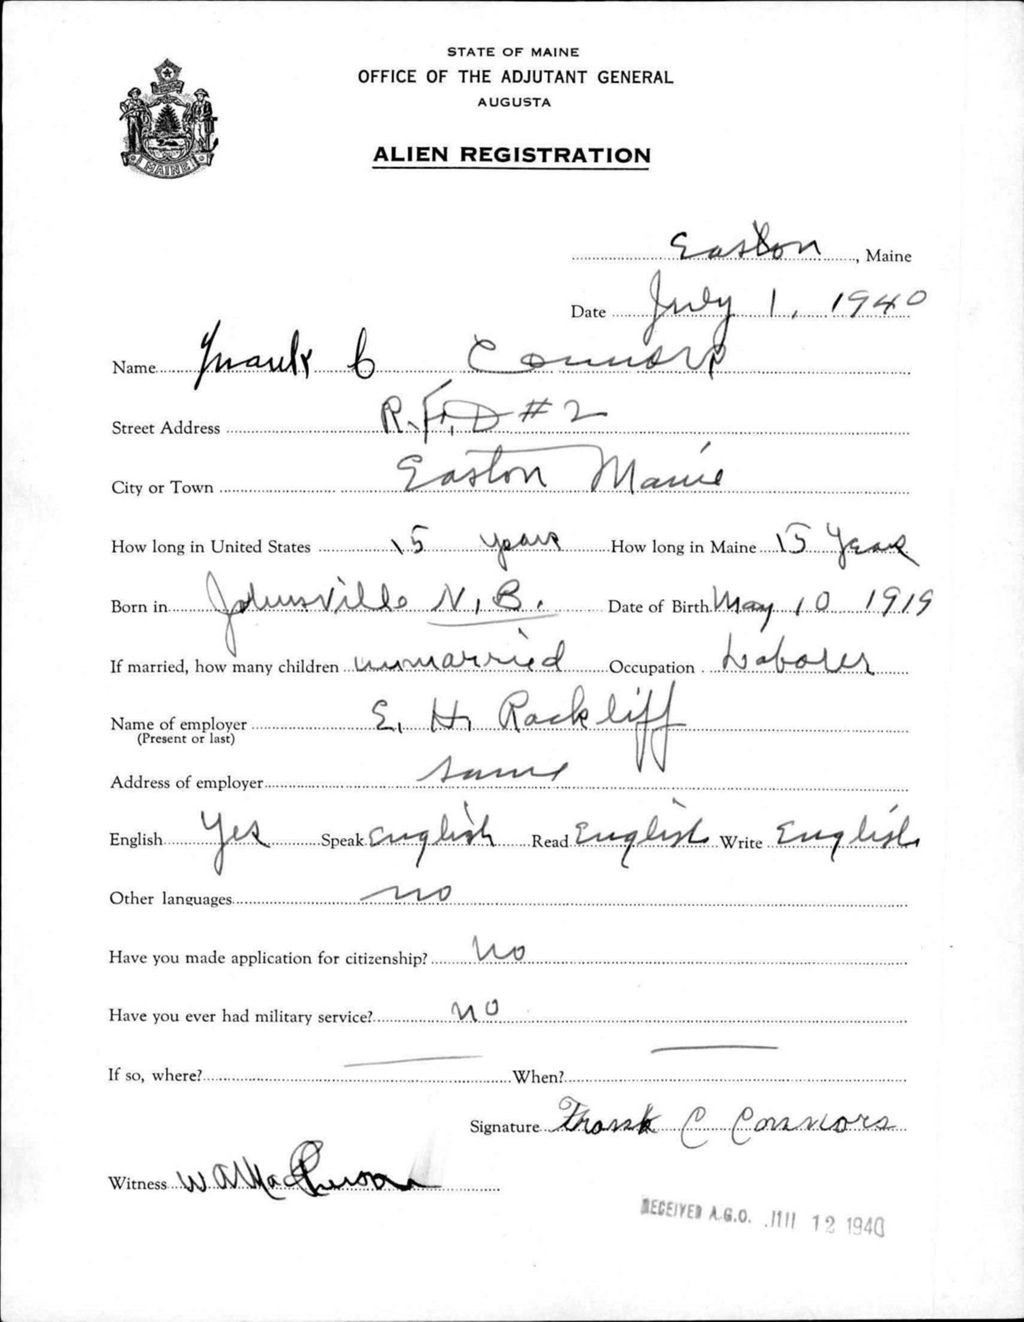 STATE OF MAINE
OFFICE OF THE ADJUTANT GENERAL
AUGUSTA
MAINE
ALIEN REGISTRATION
Easton, Maine
Date July 1, 1940
Name Frank C Connors
Street Address R.F.D #2
City or Town Easton Maine
How long in United States 15 years How long in Maine 15 Years
Born in Johnsville N.B. Date of Birth May 10 1919
If married, how many children unmarried Occupation Laborer
Name of employer E. H. Rackliff
(Present or last)
Address of employer same
English Yes Speak English Read English Write English
Other languages no
Have you made application for citizenship? No
Have you ever had military service? no
If so, where? When?
Signature Frank C Connors
Witness W A MacPherson
RECEIVED A.G.O. JUL 12 1940